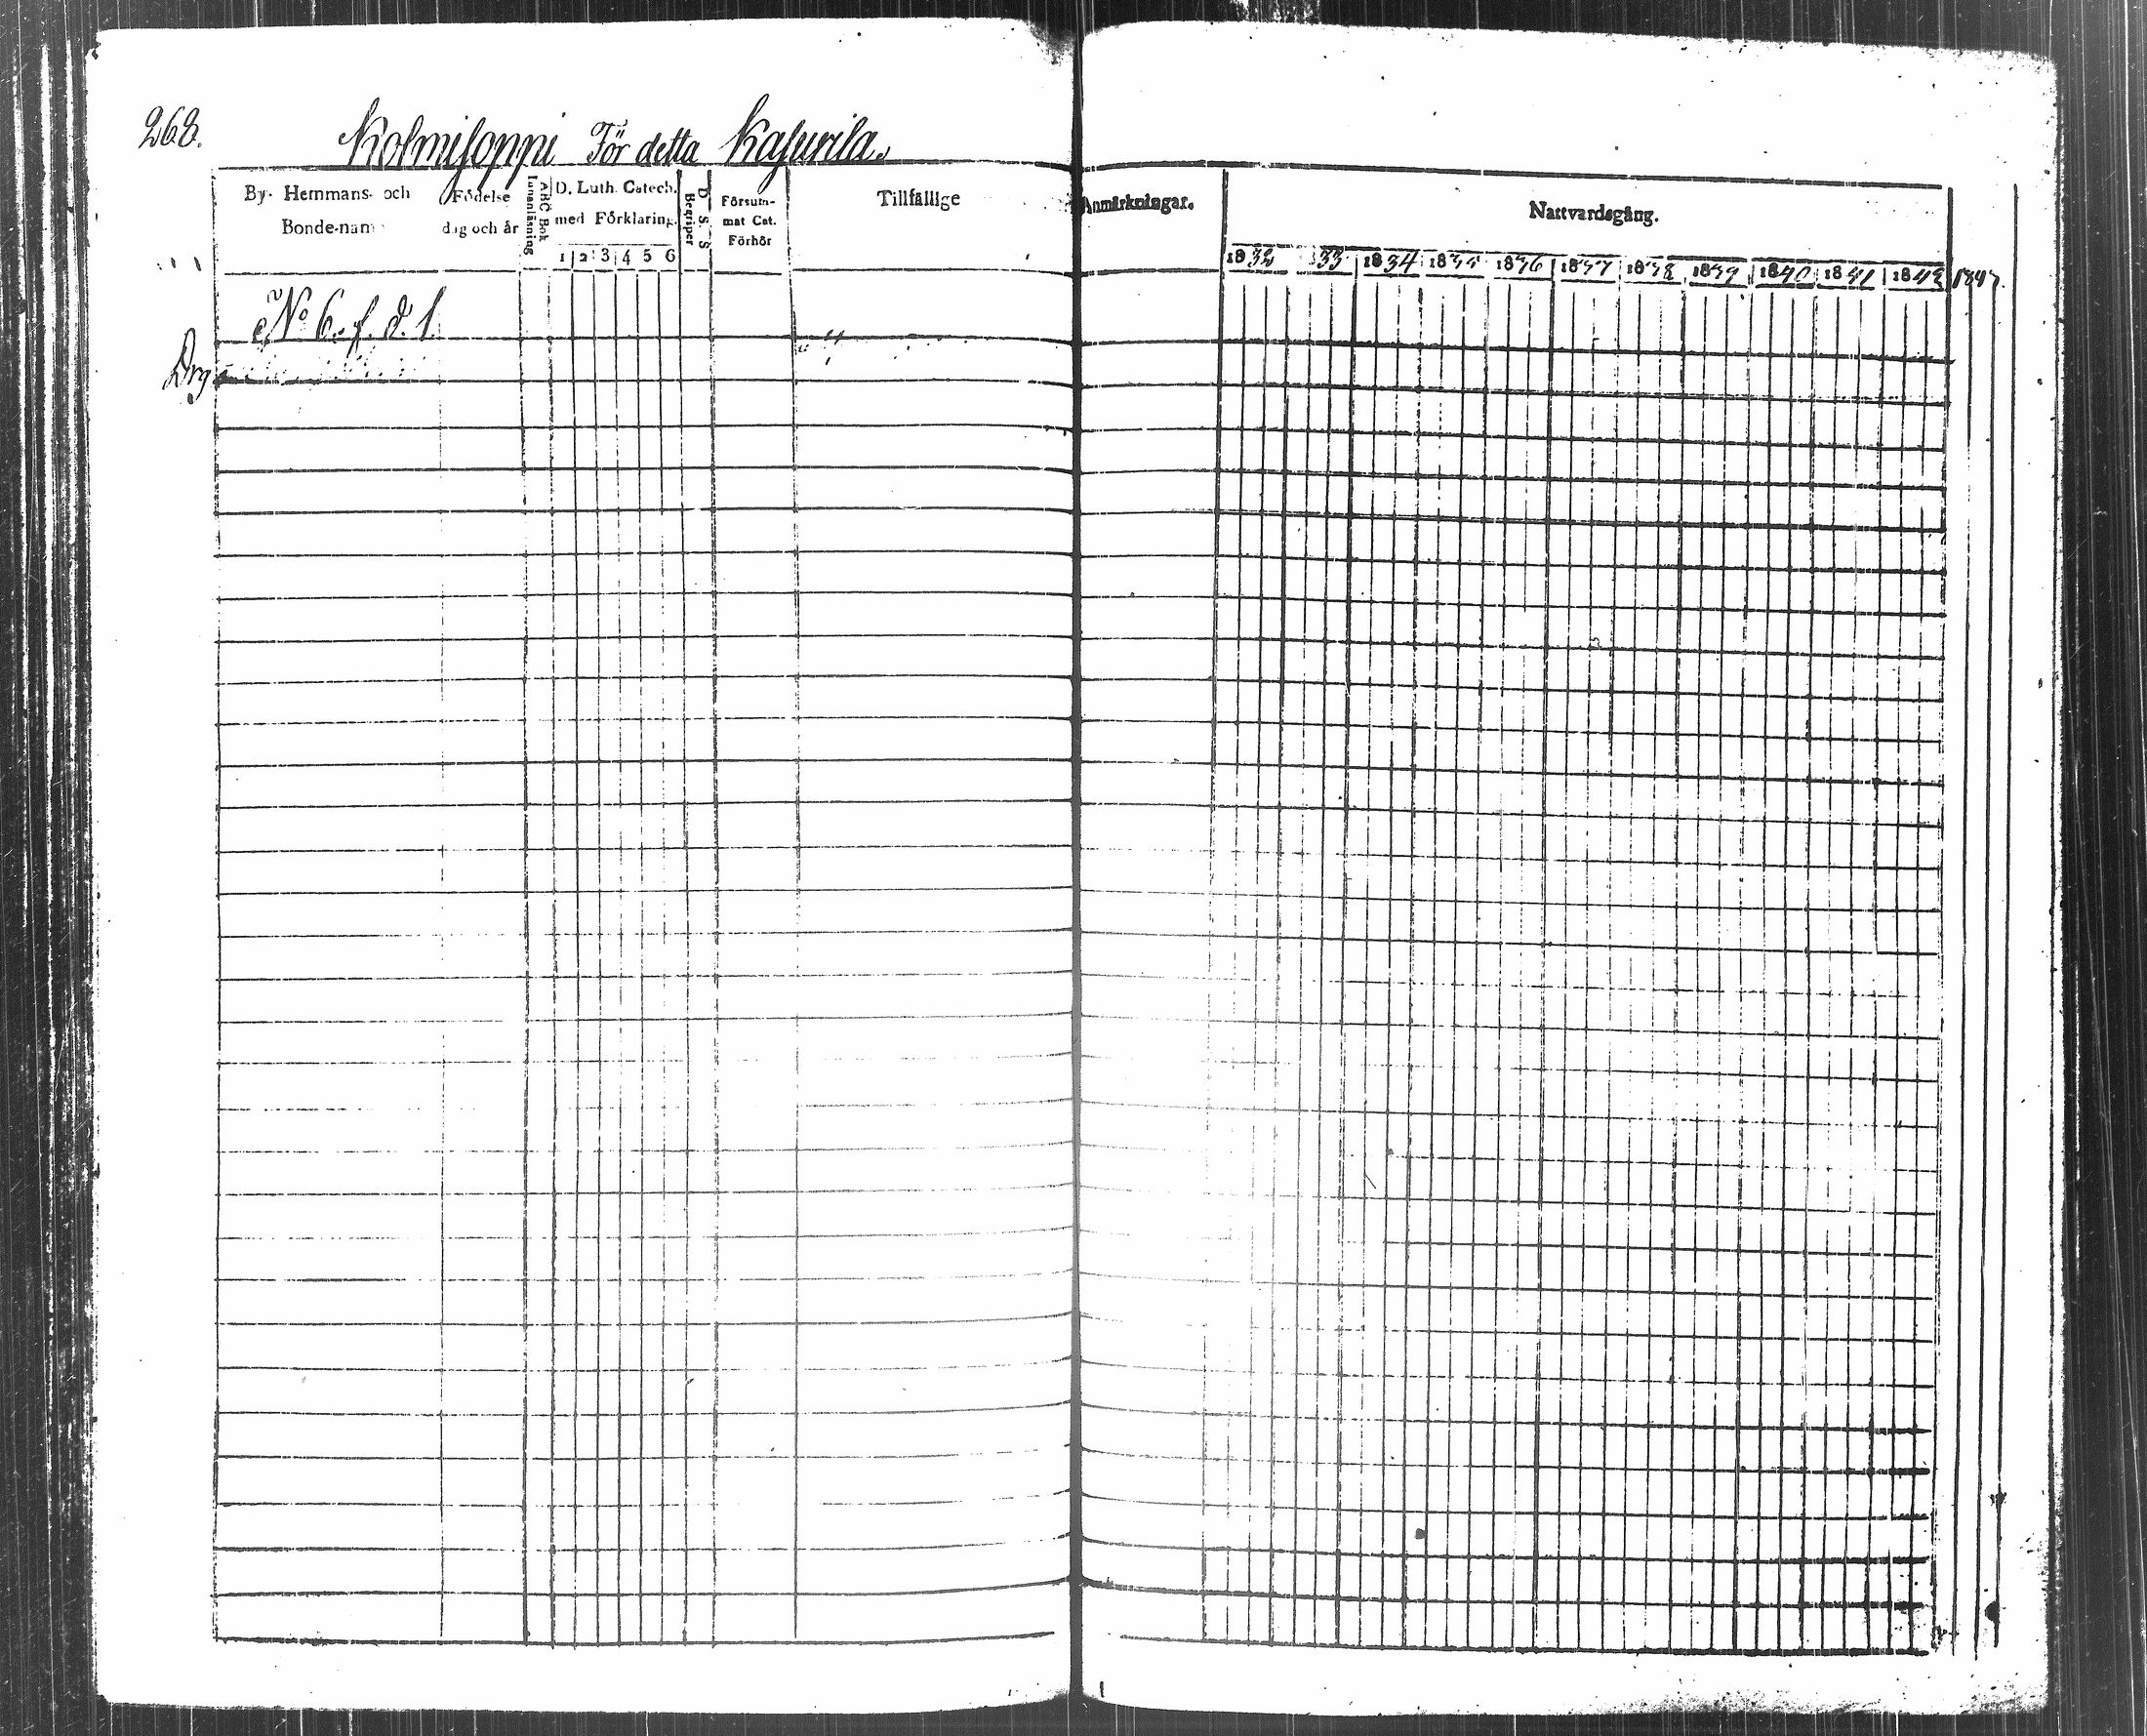 268.
Kolmisoppi För detta Kasurila.
By- Hemmans- och Bonde-nam
Födelse dag och år
ABC Bok Innanläsning
D. Luth. Catech. med Förklaring.
1 2 3 4 5 6
D. S. S. Begriper
Försum- mat Cat. Förhör
Tillfällige Anmärkningar.
Nattvardsgång.
1832 1833 1834 1835 1836 1837 1838 1839 1840 1841 1842 1843.
No 6. f. d. 1
Drg